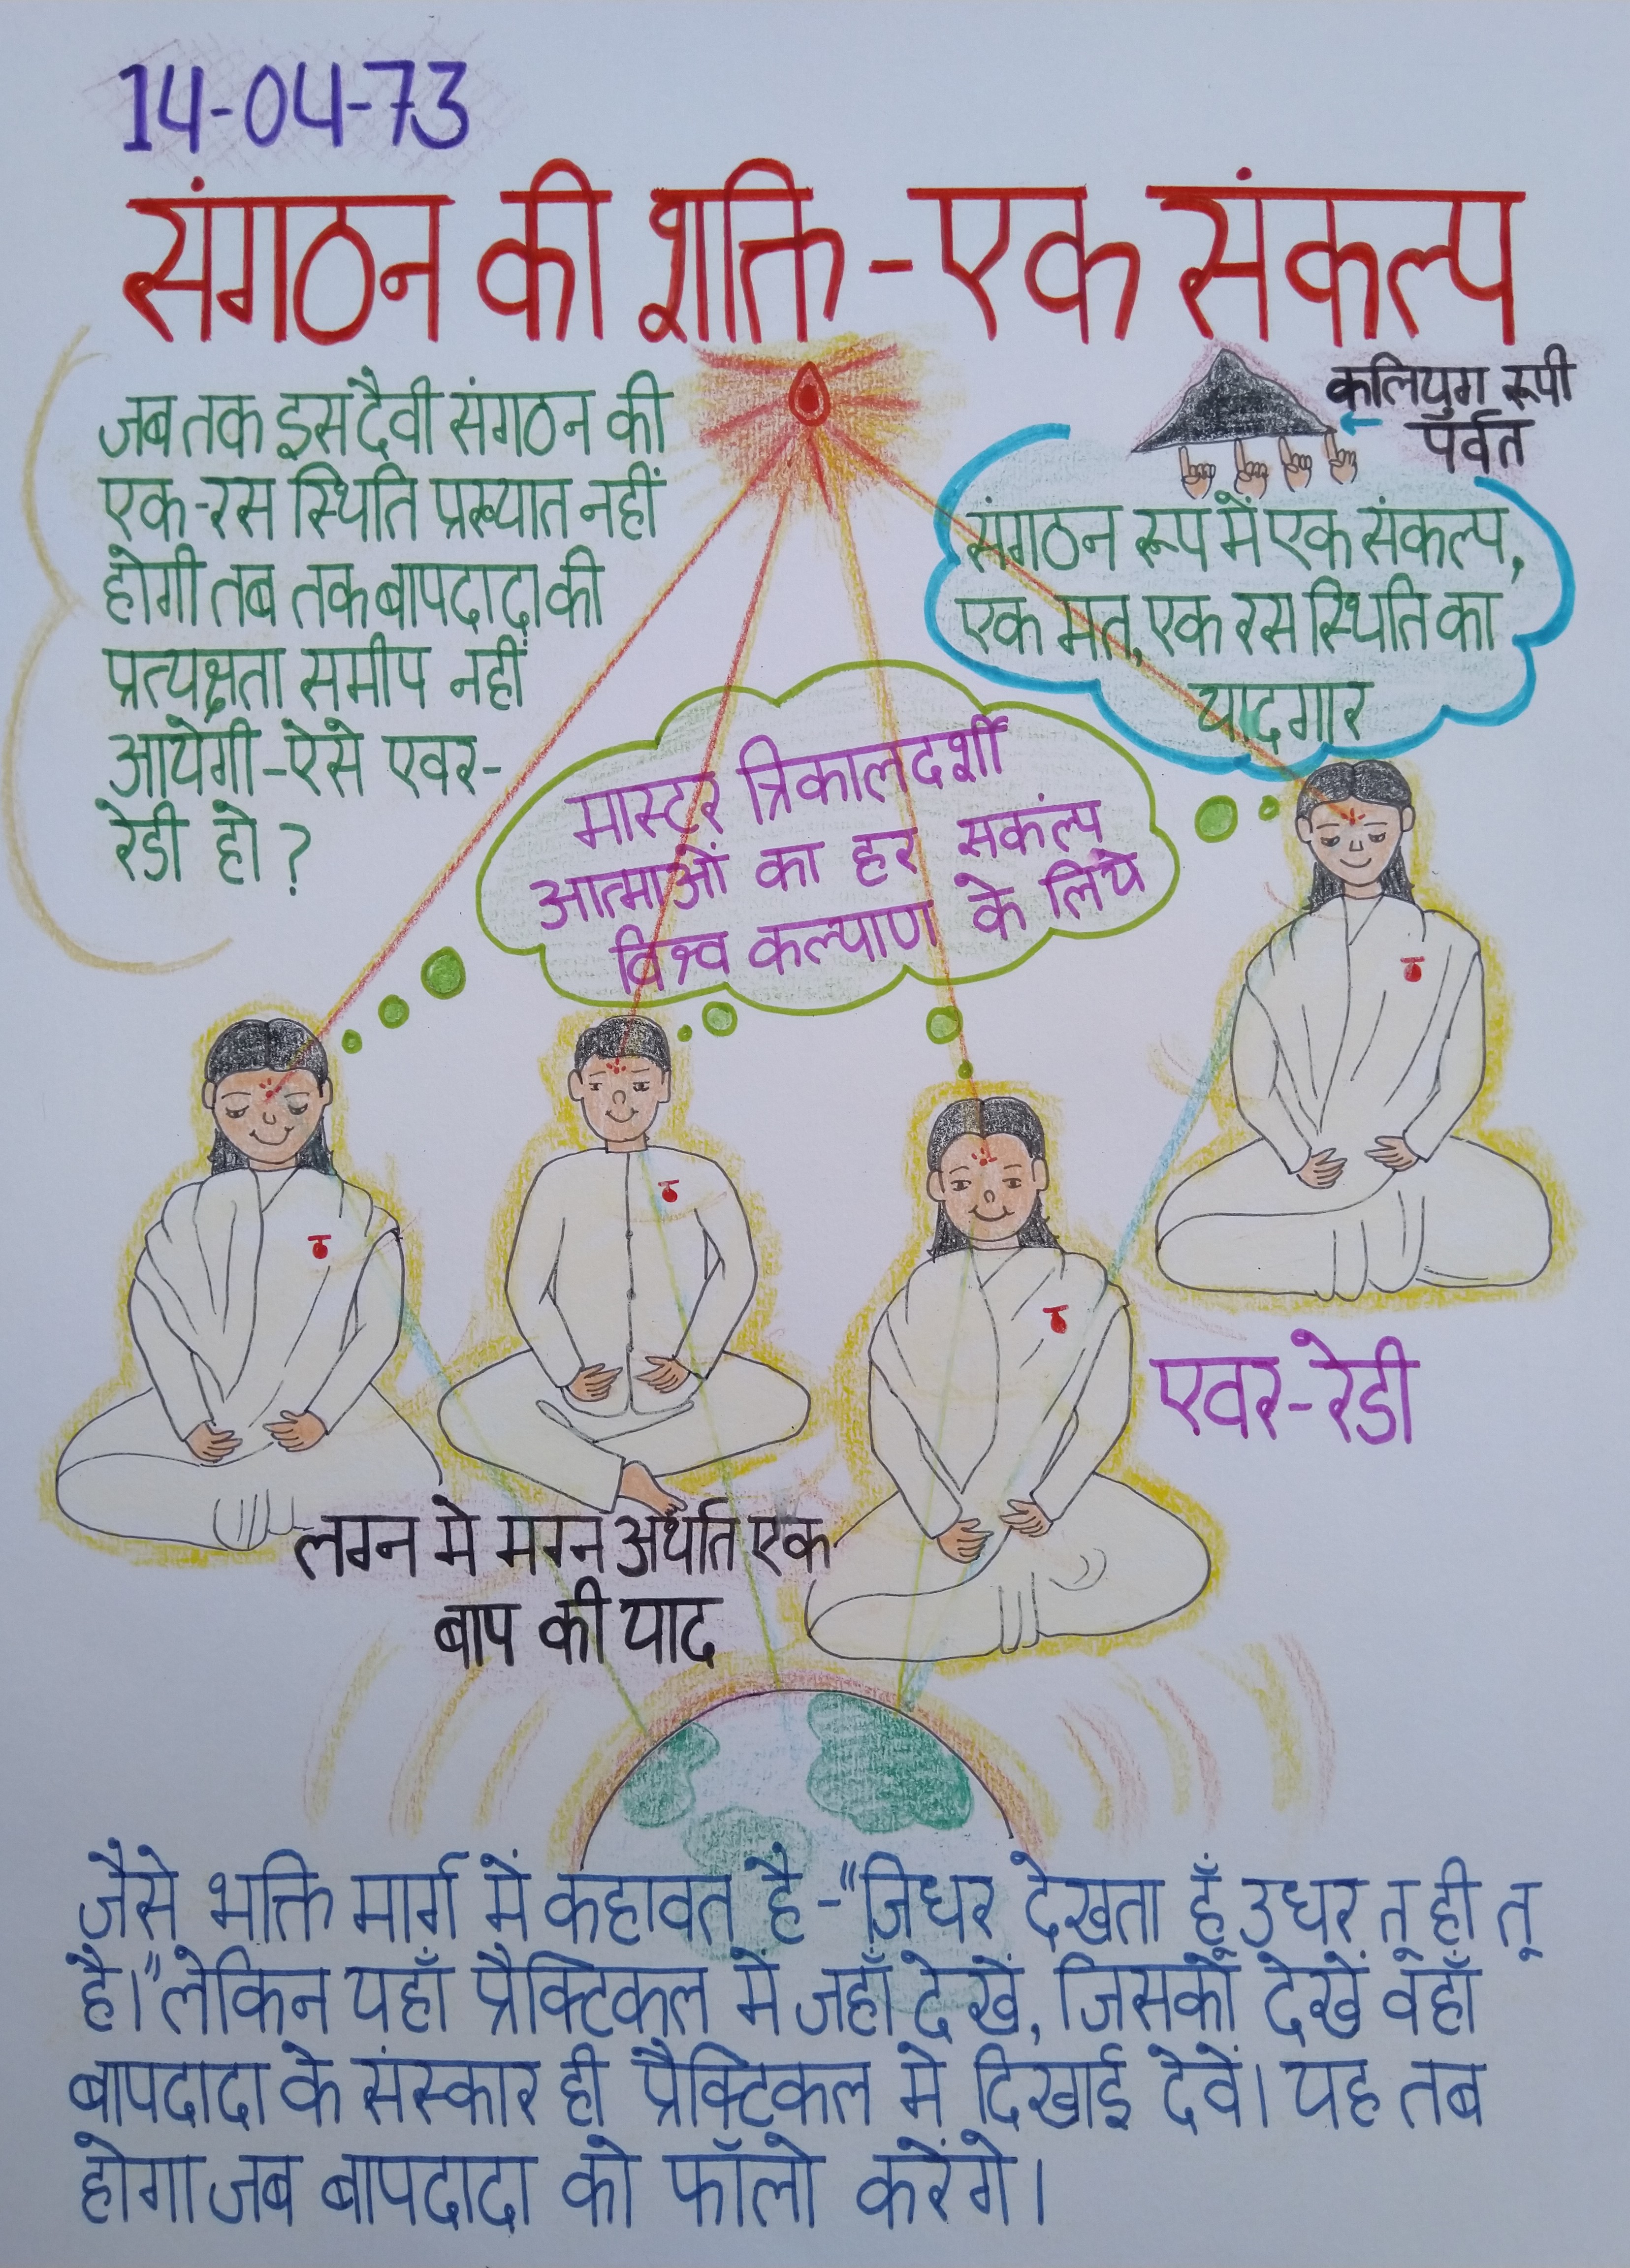 14-04-73
संगठन की शक्ति - एक संकल्प
जब तक इस दैवी संगठन की
एक-रस स्थिति प्रख्यात नहीं
होगी तब तक बापदादा की
प्रत्यक्षता समीप नहीं
आयेगी - ऐसे एवर-
रेडी हो?
कलियुग रूपी
पर्वत
संगठन रूप में एक संकल्प,
एक मत, एक रस स्थिति का
यादगार
मास्टर त्रिकालदर्शी
आत्माओं का हर सकंल्प
विश्व कल्याण के लिये
एवर-रेडी
लग्न मे मग्न अर्थात एक
बाप की याद
जैसे भक्ति मार्ग में कहावत है - "जिधर देखता हूँ उधर तू ही तू
है।" लेकिन यहाँ प्रैक्टिकल में जहाँ देखें, जिसको देखें वहाँ
बापदादा के संस्कार ही प्रैक्टिकल मे दिखाई देवें। यह तब
होगा जब बापदादा को फॉलो करेंगे।